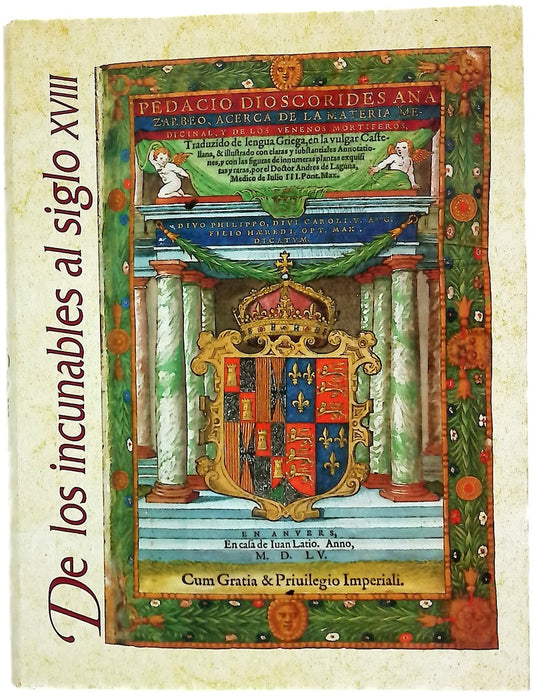 De los incunables al siglo XVIII
PEDACIO DIOSCORIDES ANA
ZARBEO, ACERCA DE LA MATERIA ME-
DICINAL, Y DE LOS VENENOS MORTIFEROS,
Traduzido de lengua Griega, en la vulgar Caste-
llana, & illustrado con claras y substantiales Annotatio-
nes, y con las figuras de innumeras plantas exquisi-
tas y raras, por el Doctor Andres de Laguna,
Medico de Iulio III. Pont. Max.
DIVO PHILIPPO, DIVI CAROLI. V. AVG.
FILIO HÆREDI. OPT. MAX.
DICATVM.
EN ANVERS,
En casa de Iuan Latio. Anno,
M. D. LV.
Cum Gratia & Priuilegio Imperiali.